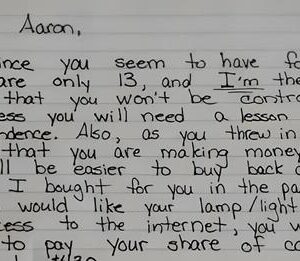 Aaron,
ince you seem to have fo
are only 13, and I'm the
that you won't be contro
ess you will need a lesson
ndence. Also, as you threw in
that you are making money
ll be easier to buy back a
I bought for you in the pa
would like your lamp/light
cess to the internet, you w
to pay your share of co